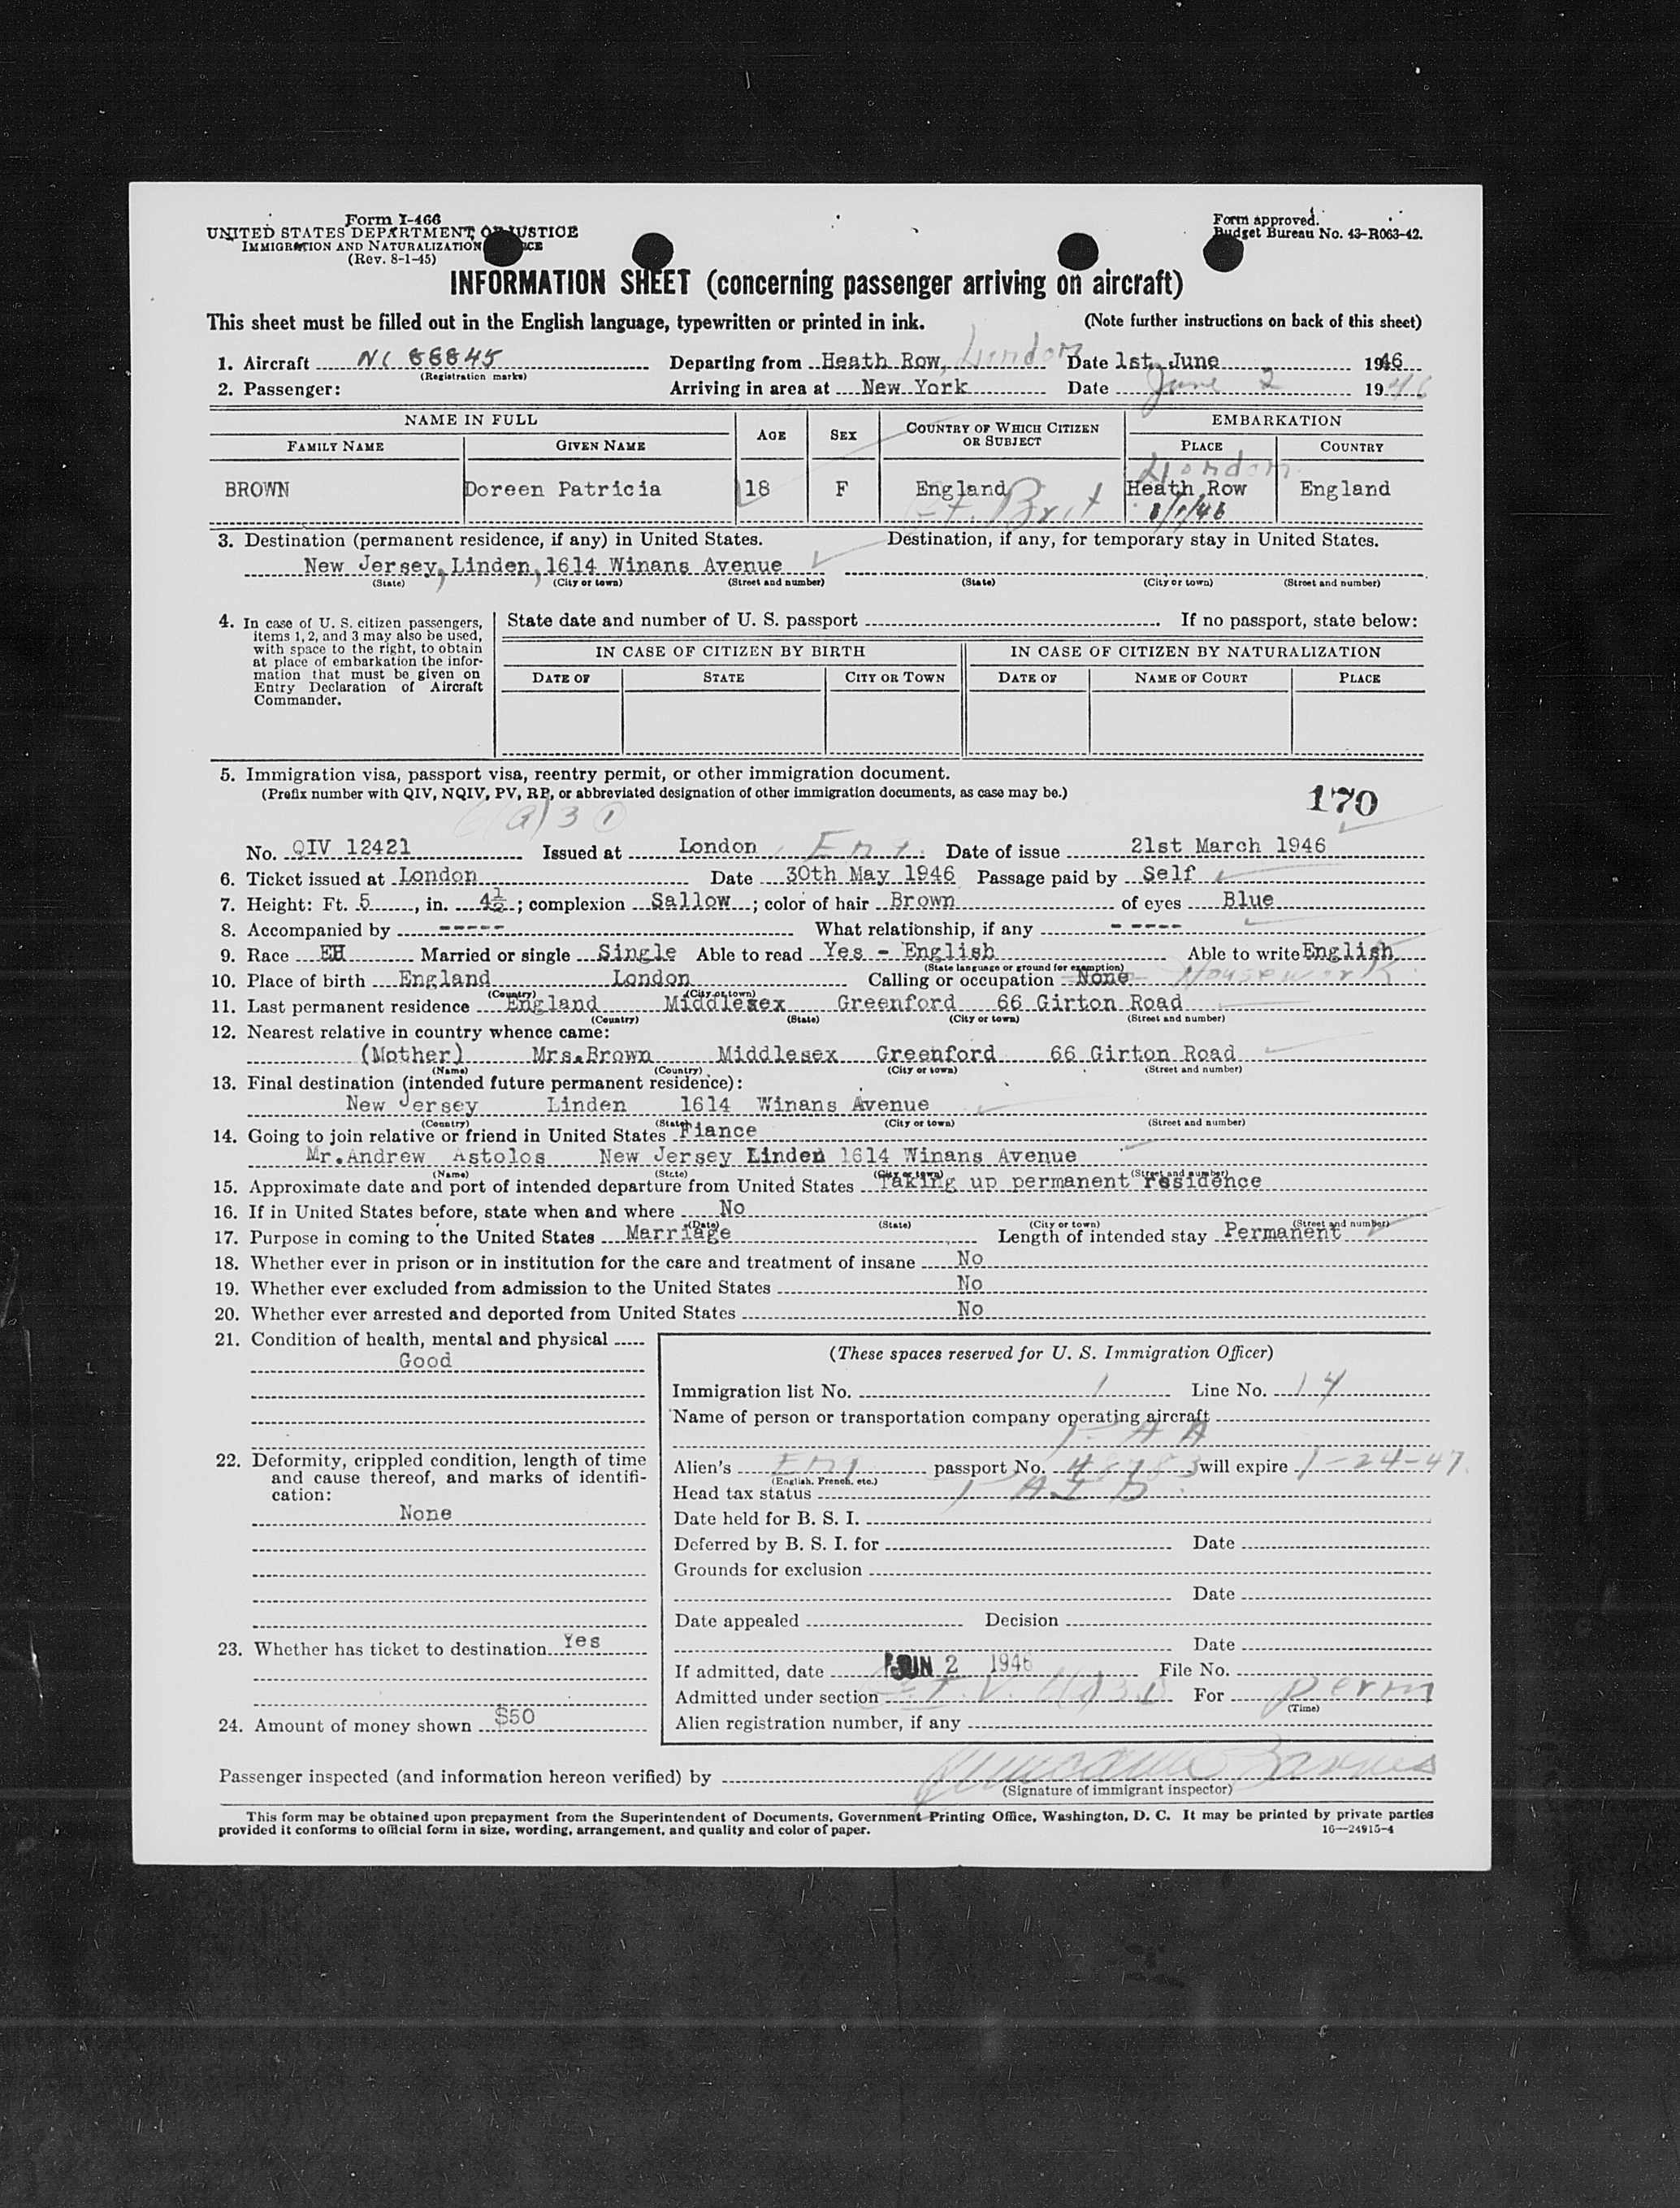 Form I-466
UNITED STATES DEPARTMENT OF JUSTICE
IMMIGRATION AND NATURALIZATION
(Rev. 8-1-45)
Form approved.
Budget Bureau No. 43-R063-42.
INFORMATION SHEET (concerning passenger arriving on aircraft)
This sheet must be filled out in the English language, typewritten or printed in ink. (Note further instructions on back of this sheet)
1. Aircraft NC 88845 Departing from Heath Row, London Date 1st June 1946
(Registration marks)
2. Passenger: Arriving in area at New York Date June 2 1946
NAME IN FULL AGE SEX COUNTRY OF WHICH CITIZEN OR SUBJECT EMBARKATION
FAMILY NAME GIVEN NAME PLACE COUNTRY
London
BROWN Doreen Patricia 18 F England Heath Row England
Gt. Brit 6/1/46
3. Destination (permanent residence, if any) in United States. Destination, if any, for temporary stay in United States.
New Jersey, Linden, 1614 Winans Avenue
(State) (City or town) (Street and number) (State) (City or town) (Street and number)
4. In case of U. S. citizen passengers, items 1, 2, and 3 may also be used, with space to the right, to obtain at place of embarkation the information that must be given on Entry Declaration of Aircraft Commander.
State date and number of U. S. passport If no passport, state below:
IN CASE OF CITIZEN BY BIRTH IN CASE OF CITIZEN BY NATURALIZATION
DATE OF STATE CITY OR TOWN DATE OF NAME OF COURT PLACE
5. Immigration visa, passport visa, reentry permit, or other immigration document.
(Prefix number with QIV, NQIV, PV, RP, or abbreviated designation of other immigration documents, as case may be.)
170
No. QIV 12421 Issued at London, Eng. Date of issue 21st March 1946
6. Ticket issued at London Date 30th May 1946 Passage paid by Self
7. Height: Ft. 5, in. 4½; complexion Sallow; color of hair Brown of eyes Blue
8. Accompanied by ----- What relationship, if any - ----
9. Race EH Married or single Single Able to read Yes - English Able to write English
(State language or ground for exemption)
10. Place of birth England London Calling or occupation None Housework
(Country) (City or town)
11. Last permanent residence England Middlesex Greenford 66 Girton Road
(Country) (State) (City or town) (Street and number)
12. Nearest relative in country whence came:
(Mother) Mrs.Brown Middlesex Greenford 66 Girton Road
(Name) (Country) (City or town) (Street and number)
13. Final destination (intended future permanent residence):
New Jersey Linden 1614 Winans Avenue
(Country) (State) (City or town) (Street and number)
14. Going to join relative or friend in United States Fiance
Mr.Andrew Astolos New Jersey Linden 1614 Winans Avenue
(Name) (State) (City or town) (Street and number)
15. Approximate date and port of intended departure from United States Taking up permanent residence
16. If in United States before, state when and where No
(Date) (State) (City or town) (Street and number)
17. Purpose in coming to the United States Marriage Length of intended stay Permanent
18. Whether ever in prison or in institution for the care and treatment of insane No
19. Whether ever excluded from admission to the United States No
20. Whether ever arrested and deported from United States No
21. Condition of health, mental and physical
Good
22. Deformity, crippled condition, length of time and cause thereof, and marks of identification:
None
23. Whether has ticket to destination Yes
24. Amount of money shown $50
(These spaces reserved for U. S. Immigration Officer)
Immigration list No. 1 Line No. 14
Name of person or transportation company operating aircraft
P A A
Alien's Eng passport No. 48783 will expire 1-24-47
(English, French, etc.)
Head tax status PAID
Date held for B. S. I.
Deferred by B. S. I. for Date
Grounds for exclusion
Date
Date appealed Decision
Date
If admitted, date JUN 2 1946 File No.
Admitted under section For perm
(Time)
Alien registration number, if any
Passenger inspected (and information hereon verified) by
(Signature of immigrant inspector)
This form may be obtained upon prepayment from the Superintendent of Documents, Government Printing Office, Washington, D. C. It may be printed by private parties
provided it conforms to official form in size, wording, arrangement, and quality and color of paper. 16—24915-4